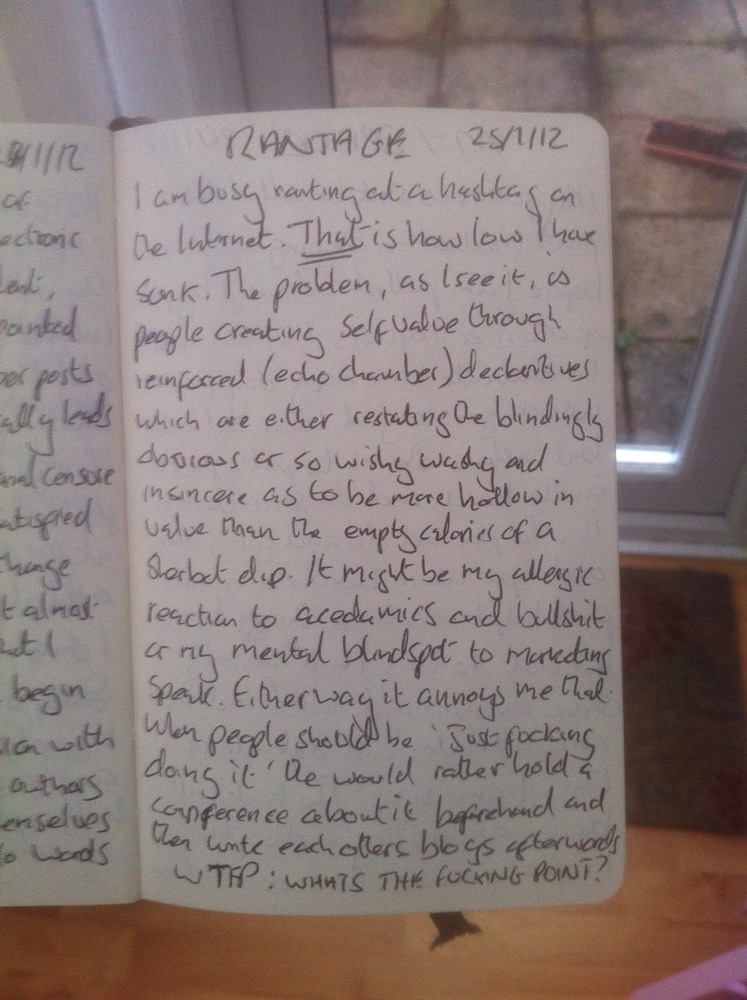 5/1/12
of
ectronic
lent,
ointed
er posts
ally leads
and censore
atisfied
change
t almost
hat I
begin
ion with
authors
emselves
to words
RANTAGE 25/1/12
I am busy ranting at a hashtag on
the Internet. That is how low I have
sunk. The problem, as I see it, is
people creating self value through
reinforced (echo chamber) declaratives
which are either restating the blindingly
obvious or so wishy washy and
insincere as to be more hollow in
value than the empty calories of a
sherbet dip. It might be my allergic
reaction to acedamics and bullshit
or my mental blindspot to marketing
speak. Either way it annoys me that
when people should be 'just fucking
doing it' the would rather hold a
conference about it beforehand and
then write each others blogs afterwords
WTFP: WHATS THE FUCKING POINT?